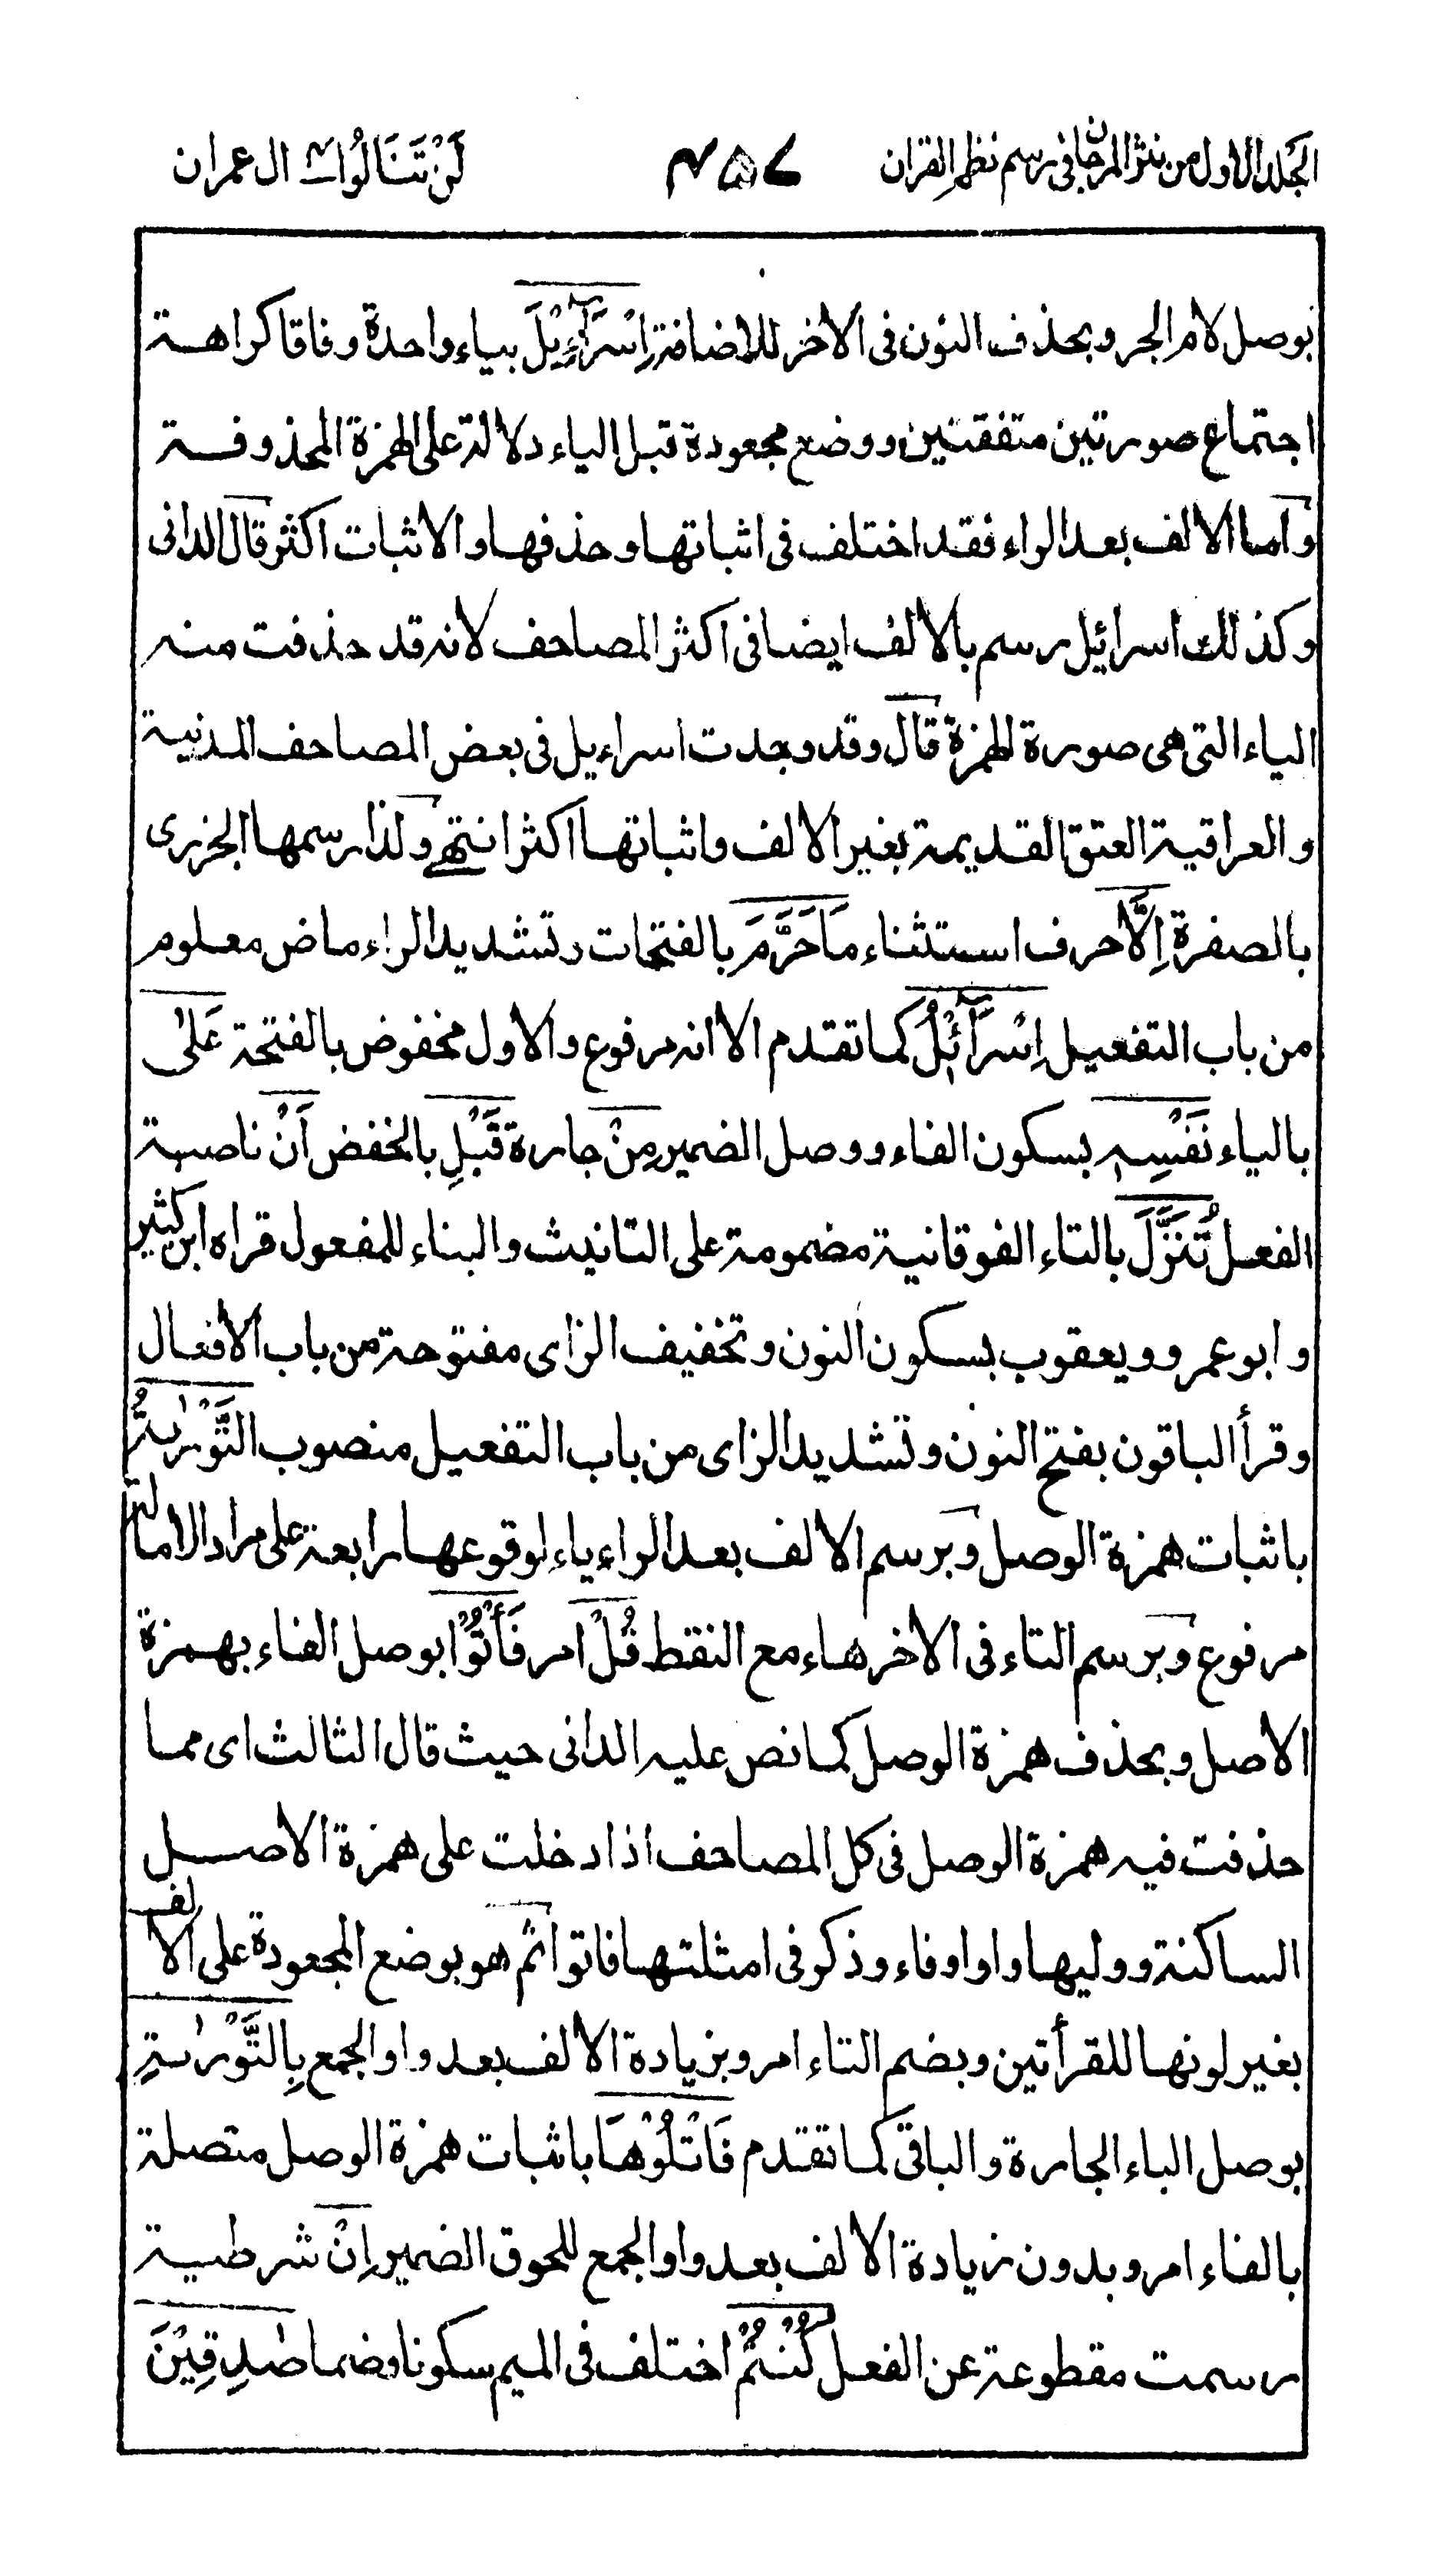 المجلد الاول من نثر المرجان فى رسم نظم القران ٤٥٧ لَنْ تَنَالُوا ال عمران
بوصل لام الجر وبحذف النون فى الاخر للاضافة اِسْرَآءِيْلَ بياء واحدة وفاقا كراهة
اجتماع صورتين متفقتين ووضع مجعودة قبل الياء دلالة على الهمزة المحذوفة
واما الالف بعد الراء فقد اختلف فى اثباتها وحذفها والاثبات اكثر قال الدانى
وكذلك اسرائيل رسم بالالف ايضا فى اكثر المصاحف لانه قد حذفت منه
الياء التى هى صورة الهمزة قال وقد وجدت اسراءيل فى بعض المصاحف المدنية
والعراقية العتق القديمة بغير الالف واثباتها اكثر انتهى ولذا رسمها الجزرى
بالصفرة اِلَّا حرف استثناء مَا حَرَّمَ بالفتحات وتشديد الراء ماض معلوم
من باب التفعيل اِسْرَآئِيْلُ كما تقدم الا انه مرفوع والاول مخفوض بالفتحة عَلٰى
بالياء نَفْسِهٖ بسكون الفاء ووصل الضمير مِنْ جارة قَبْلِ بالخفض اَنْ ناصبة
الفعل تُنَزَّلَ بالتاء الفوقانية مضمومة على التانيث والبناء للمفعول قراه ابن كثير
وابو عمرو ويعقوب بسكون النون وتخفيف الزاى مفتوحة من باب الافعال
وقرأ الباقون بفتح النون وتشديد الزاى من باب التفعيل منصوب التَّوْرٰىةُ
باثبات همزة الوصل وبرسم الالف بعد الراء ياء لوقوعها رابعة على مراد الامالة
مرفوع وبرسم التاء فى الاخر هاء مع النقط قُلْ امر فَأْتُوْا بوصل الفاء بهمزة
الاصل وبحذف همزة الوصل كما نص عليه الدانى حيث قال الثالث اى مما
حذفت فيه همزة الوصل فى كل المصاحف اذا دخلت على همزة الاصل
الساكنة ووليها واو او فاء وذكر فى امثلتها فاتوا ثم هو بوضع المجعودة على الالف
بغير لونها للقرأتين وبضم التاء امر وبزيادة الالف بعد واو الجمع بِالتَّوْرٰىةِ
بوصل الباء الجارة والباقى كما تقدم فَاتْلُوْهَا باثبات همزة الوصل متصلة
بالفاء امر وبدون زيادة الالف بعد واو الجمع للحوق الضمير اِنْ شرطية
رسمت مقطوعة عن الفعل كُنْتُمْ اختلف فى الميم سكونا وضما صٰدِقِيْنَ